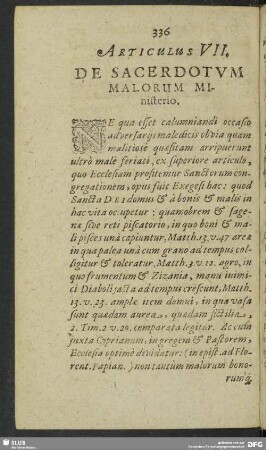 336
ARTICULUS VII.
DE SACERDOTVM
MALORUM MI-
nisterio.
NE qua esset calumniandi occasio
adversarijs maledicis obvia quam
malitiosè quæsitam arripuerunt
ultrò malè feriati, ex superiore articulo,
quo Ecclesiam profitemur Sanctorum con-
gregationem, opus fuit Exegesi hac: quod
Sancta DEI domus & à bonis & malis in
hac vita occupetur: quamobrem & sage-
næ sive reti piscatorio, in quo boni & ma-
li pisces unà capiuntur, Matth. 13. v. 47 areæ
in qua palea unà cum grano ad tempus col-
ligitur & toleratur, Matth. 3. v. 12. agro, in
quo frumentum & Zizania, manu inimi-
ci Diaboli jacta ad tempus crescunt, Matth.
13. v. 23. amplæ item domui, in qua vasa
sunt quædam aurea, quædam fictilia,
2. Tim. 2. v. 20. comparata legitur. Ac cum
juxta Cyprianum, in gregem & Pastorem,
Ecclesia optimè dividatur: (in epist. ad Flo-
rent. Papian.) non tantum malorum bono-
rumq́;